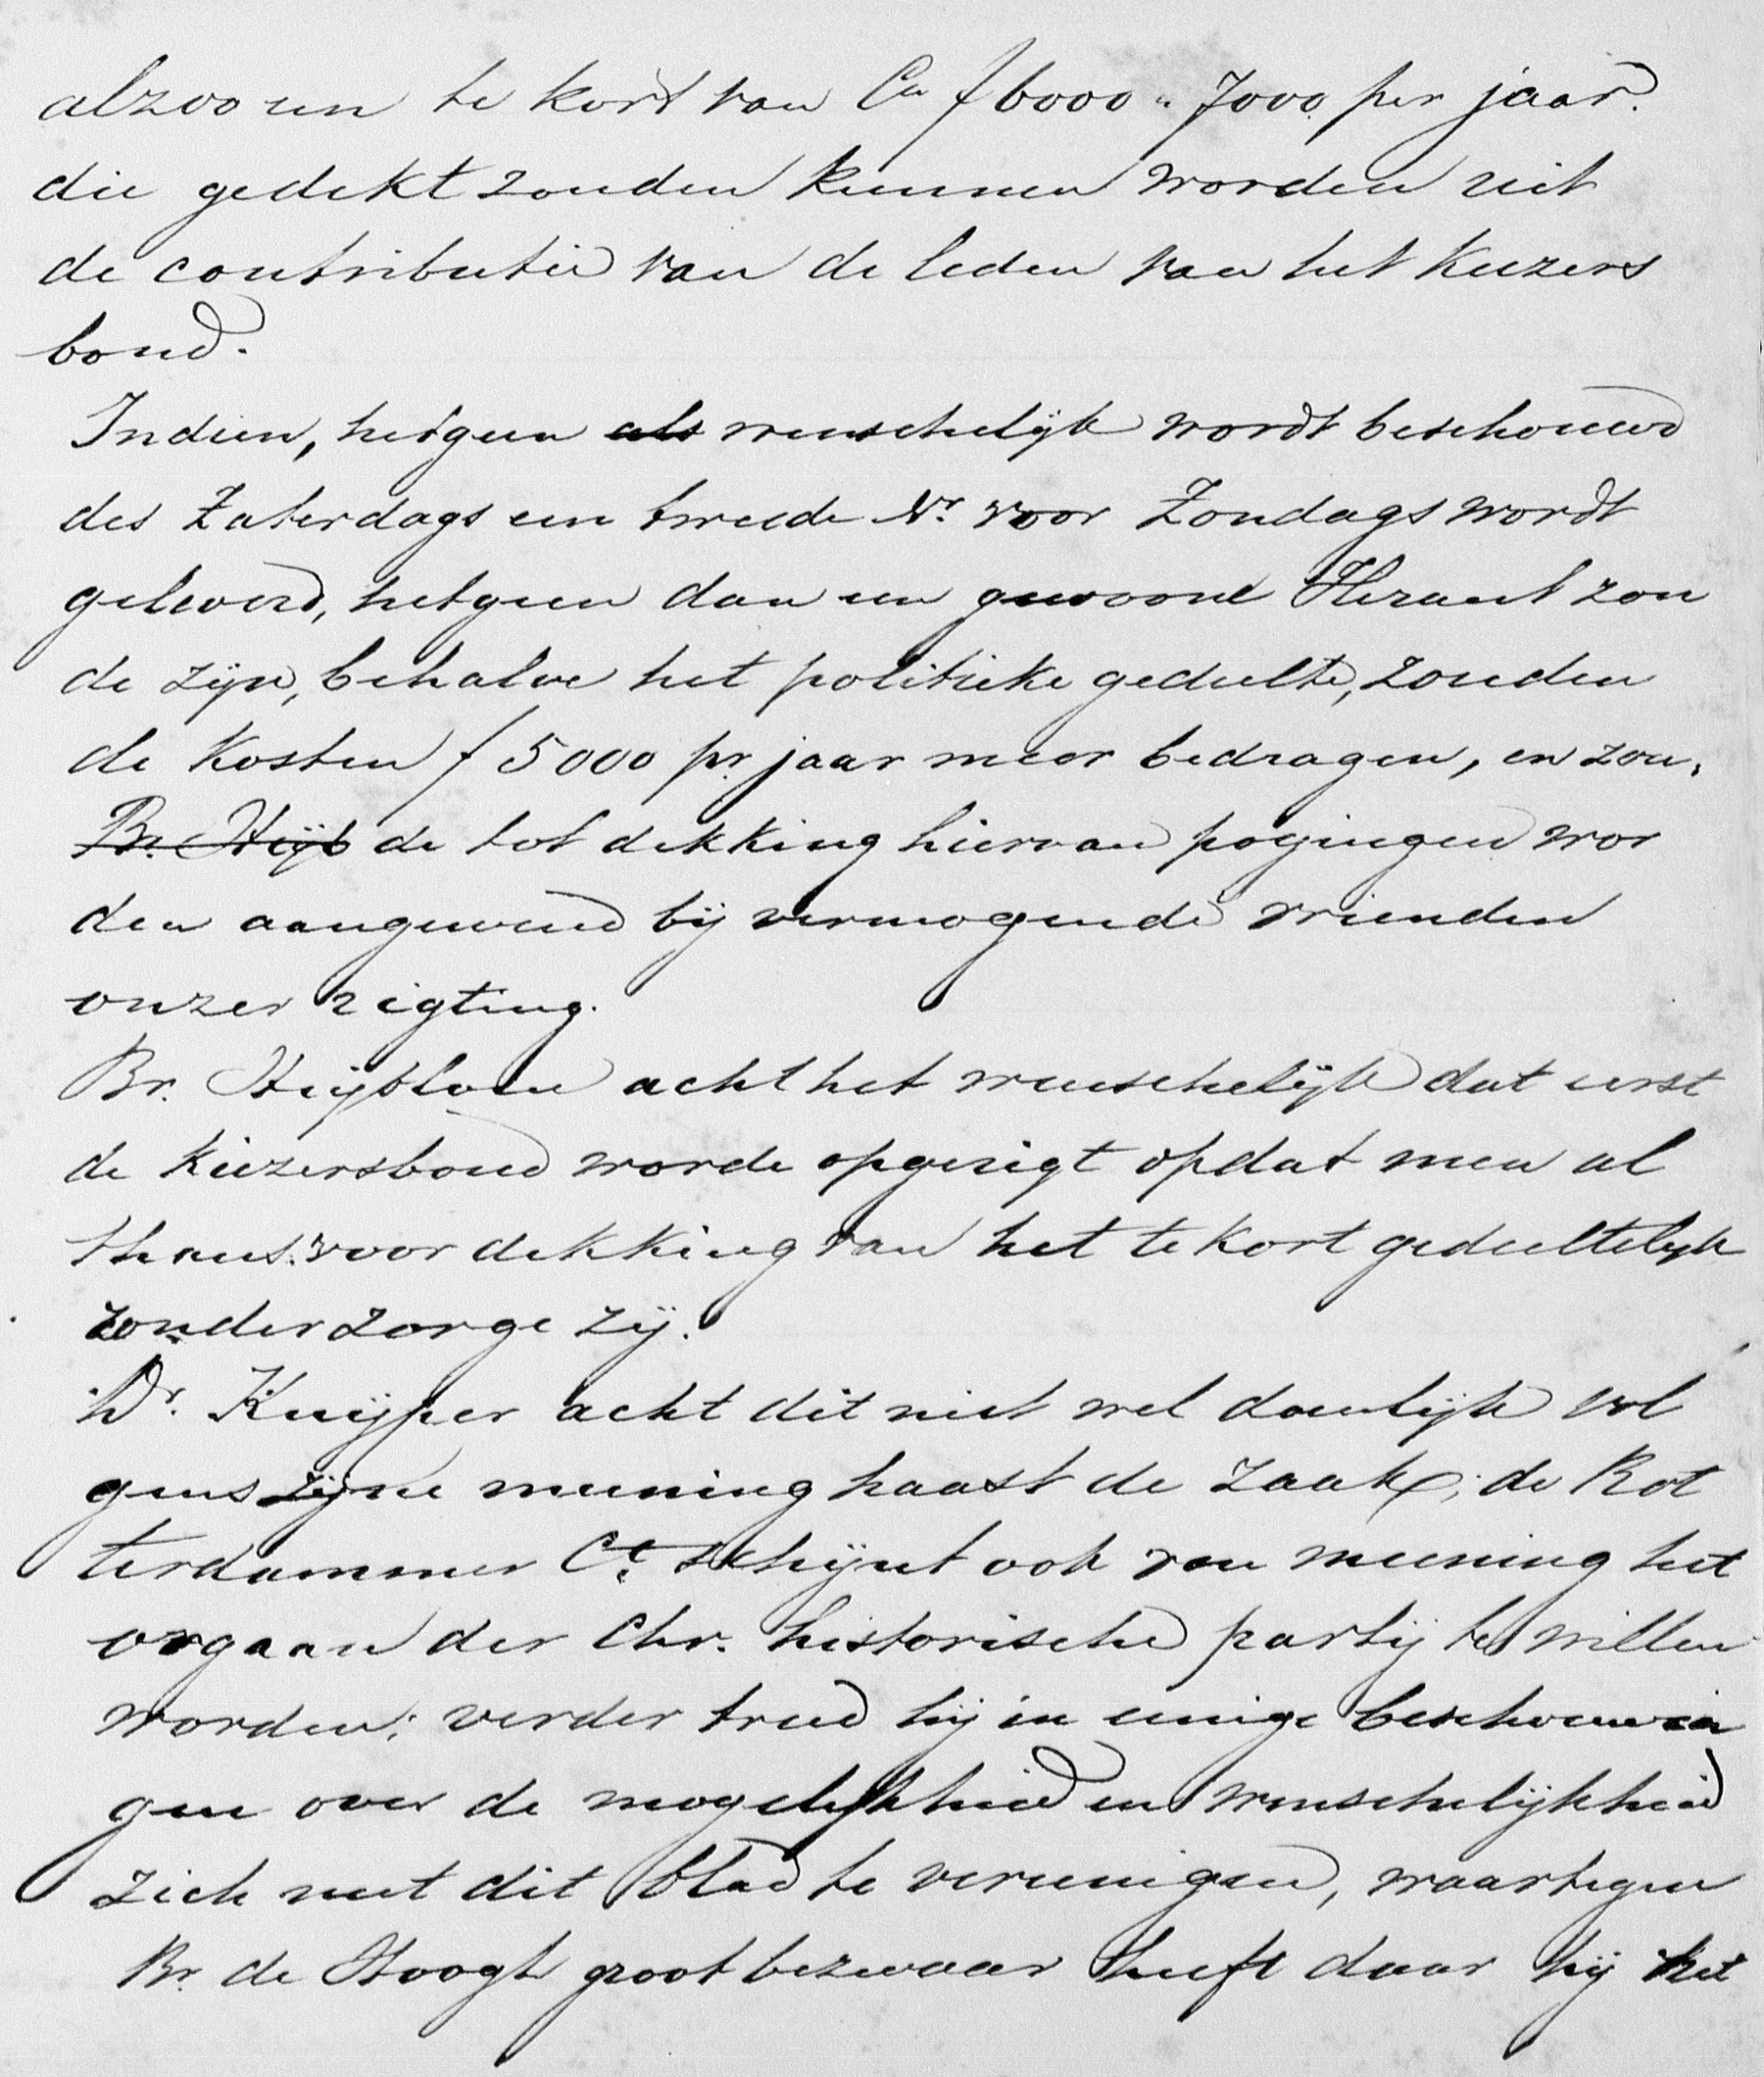 alzoo een te kort van Ca ƒ 6000 „ 7000 per jaar.
die gedekt zouden kunnen worden uit
de contributie van de leden van het Kiezers
bond.
Indien, hetgeen als wenschelijk wordt beschouwd
des Zaterdags een tweede Nr. voor Zondags wordt
geleverd, hetgeen dan een gewoone Heraut zou
de zijn, behalve het politieke gedeelte, zouden
de kosten ƒ 5000 pr. jaar meer bedragen, en zou,
Br. Huijb de tot dekking hiervan pogingen wor
den aangewend bij vermogende vrienden
onzer rigting.
Br. Huijblom acht het wenschelijk dat eerst
de Kiezersbond worde opgerigt opdat men al
thans voor dekking van het te kort gedeeltelijk
zonder zorge zij.
Dr. Kuijper acht dit niet wel doenlijk vol
gens zijne meening haast de zaak; de Rot
terdammer Ct. schijnt ook van meening het
orgaan der Chr. historische partij te willen
worden; verder treed hij in eenige beschouwin
gen over de mogelijkheid en wenschelijkheid
zich met dit blad te vereenigen, waartegen
Br. de Hoogh groot bezwaar heeft daar hij het